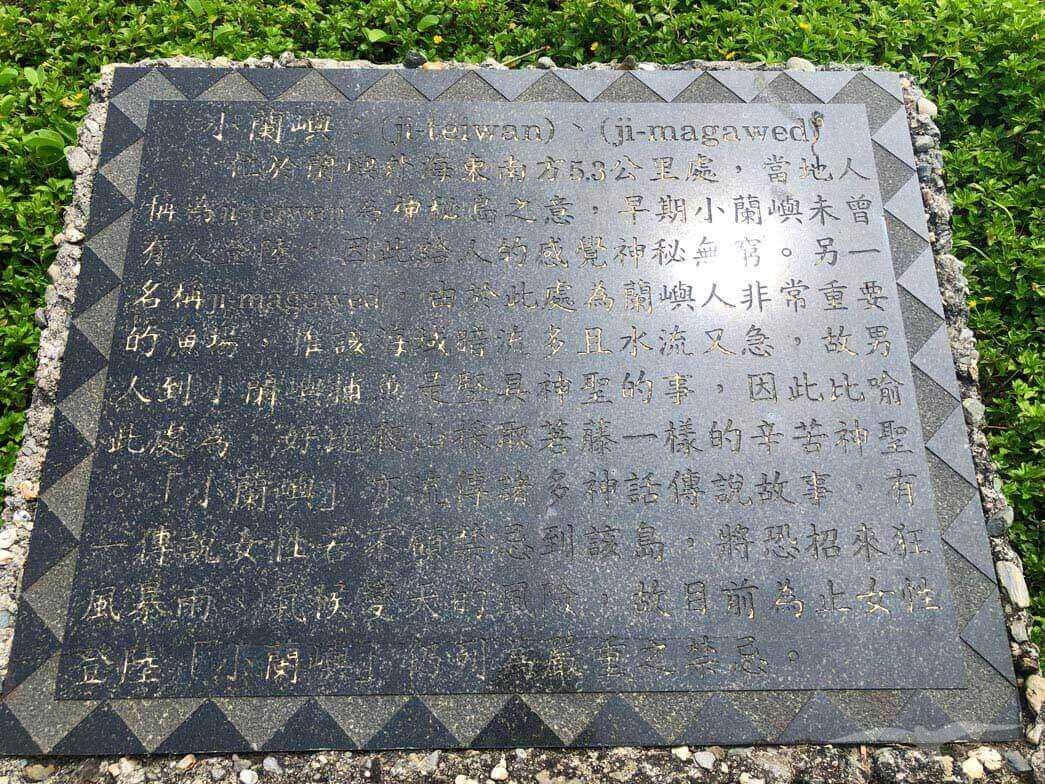 小蘭嶼：(ji-teiwan)、(ji-magawed)
位於蘭嶼外海東南方5.3公里處，當地人
稱為ji-teiwan為神秘島之意，早期小蘭嶼未曾
有人登陸，因此給人的感覺神秘無窮。另一
名稱ji-magawed 由於此處為蘭嶼人非常重要
的漁場，惟該海域暗流多且水流又急，故男
人到小蘭嶼捕魚是堅具神聖的事，因此比喻
此處為，好比爬山採取荖藤一樣的辛苦神聖
。「小蘭嶼」亦流傳諸多神話傳說故事，有
一傳說女性若不顧禁忌到該島，將恐招來狂
風暴雨、氣候變天的風險，故目前為止女性
登陸「小蘭嶼」仍列為嚴重之禁忌。